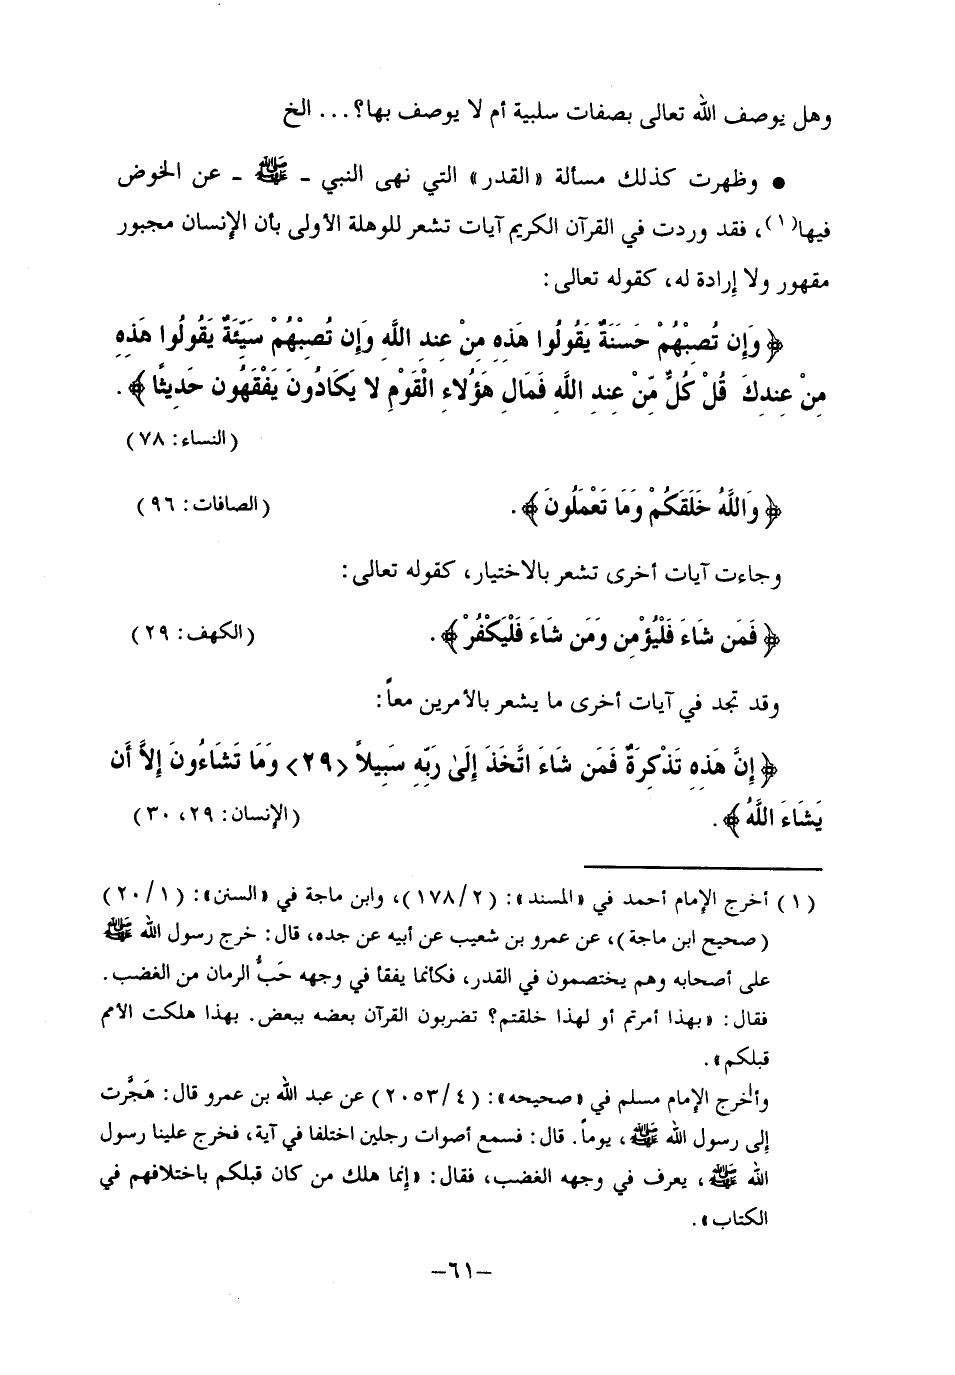 وهل يوصف الله تعالى بصفات سلبية أم لا يوصف بها؟... الخ
● وظهرت كذلك مسألة «القدر» التي نهى النبي ـ ﷺ ـ عن الخوض
فيها(١)، فقد وردت في القرآن الكريم آيات تشعر للوهلة الأولى بأن الإنسان مجبور
مقهور ولا إرادة له، كقوله تعالى:
﴿وَإِن تُصِبْهُمْ حَسَنَةٌ يَقُولُوا هَذِهِ مِنْ عِندِ اللَّهِ وَإِن تُصِبْهُمْ سَيِّئَةٌ يَقُولُوا هَذِهِ
مِنْ عِندِكَ قُلْ كُلٌّ مِّنْ عِندِ اللَّهِ فَمَالِ هَؤُلاءِ الْقَوْمِ لا يَكَادُونَ يَفْقَهُون حَدِيثًا﴾.
(النساء: ٧٨)
﴿وَاللَّهُ خَلَقَكُمْ وَمَا تَعْمَلُونَ﴾. (الصافات: ٩٦)
وجاءت آيات أخرى تشعر بالاختيار، كقوله تعالى:
﴿فَمَن شَاءَ فَلْيُؤْمِن وَمَن شَاءَ فَلْيَكْفُرْ﴾. (الكهف: ٢٩)
وقد تجد في آيات أخرى ما يشعر بالأمرين معاً:
﴿إِنَّ هَذِهِ تَذْكِرَةٌ فَمَن شَاءَ اتَّخَذَ إِلَىٰ رَبِّهِ سَبِيلاً <٢٩> وَمَا تَشَاءُونَ إِلاَّ أَن
يَشَاءَ اللَّهُ﴾. (الإنسان: ٢٩، ٣٠)
(١) أخرج الإمام أحمد في «المسند»: (١٧٨/٢)، وابن ماجة في «السنن»: (٢٠/١)
(صحيح ابن ماجة)، عن عمرو بن شعيب عن أبيه عن جده، قال: خرج رسول الله ﷺ
على أصحابه وهم يختصمون في القدر، فكأنما يفقأ في وجهه حَبُّ الرمان من الغضب.
فقال: «بهذا أمرتم أو لهذا خلقتم؟ تضربون القرآن بعضه ببعض. بهذا هلكت الأمم
قبلكم».
وأخرج الإمام مسلم في «صحيحه»: (٢٠٥٣/٤) عن عبد الله بن عمرو قال: هَجَّرت
إلى رسول الله ﷺ، يوماً. قال: فسمع أصوات رجلين اختلفا في آية، فخرج علينا رسول
الله ﷺ، يعرف في وجهه الغضب، فقال: «إنما هلك من كان قبلكم باختلافهم في
الكتاب».
–٦١–